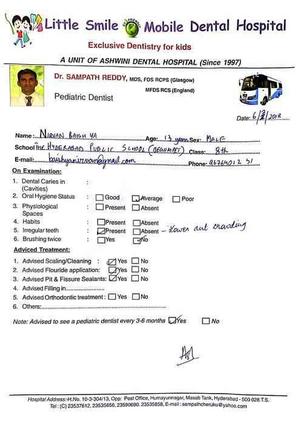 Little Smile Mobile Dental Hospital
Exclusive Dentistry for kids
A UNIT OF ASHWINI DENTAL HOSPITAL (Since 1997)
Dr. SAMPATH REDDY, MDS, FDS RCPS (Glasgow)
MFDS RCS (England)
Pediatric Dentist
Date:
Name: Age: 13 years Sex: MALE
School Inn: HYDERABAD PUBLIC SCHOOL Class: 8th
E-mail: Phone:
On Examination:
1. Dental Caries in (Cavities) :
2. Oral Hygiene Status : Good Average Poor
3. Physiological Spaces : Present Absent
4. Habits : Present Absent
5. Irregular teeth : Present Absent - Lower ant crowding
6. Brushing twice : Yes No
Adviced Treatment:
1. Advised Scaling/Cleaning : Yes No
2. Advised Flouride application: Yes No
3. Advised Pit & Fissure Sealants: Yes No
4. Advised Filling in
5. Advised Orthodontic treatment : Yes No
6. Others:
Note: Advised to see a pediatric dentist every 3-6 months Yes No
Hospital Address: H.No. 10-3-304/13, Opp: Post Office, Humayunnagar, Masab Tank, Hyderabad - 500 028 T.S.
Tel : (C) 23537612, 23535656, 23590690, 23535858, E-mail : sampathcheruku@yahoo.com